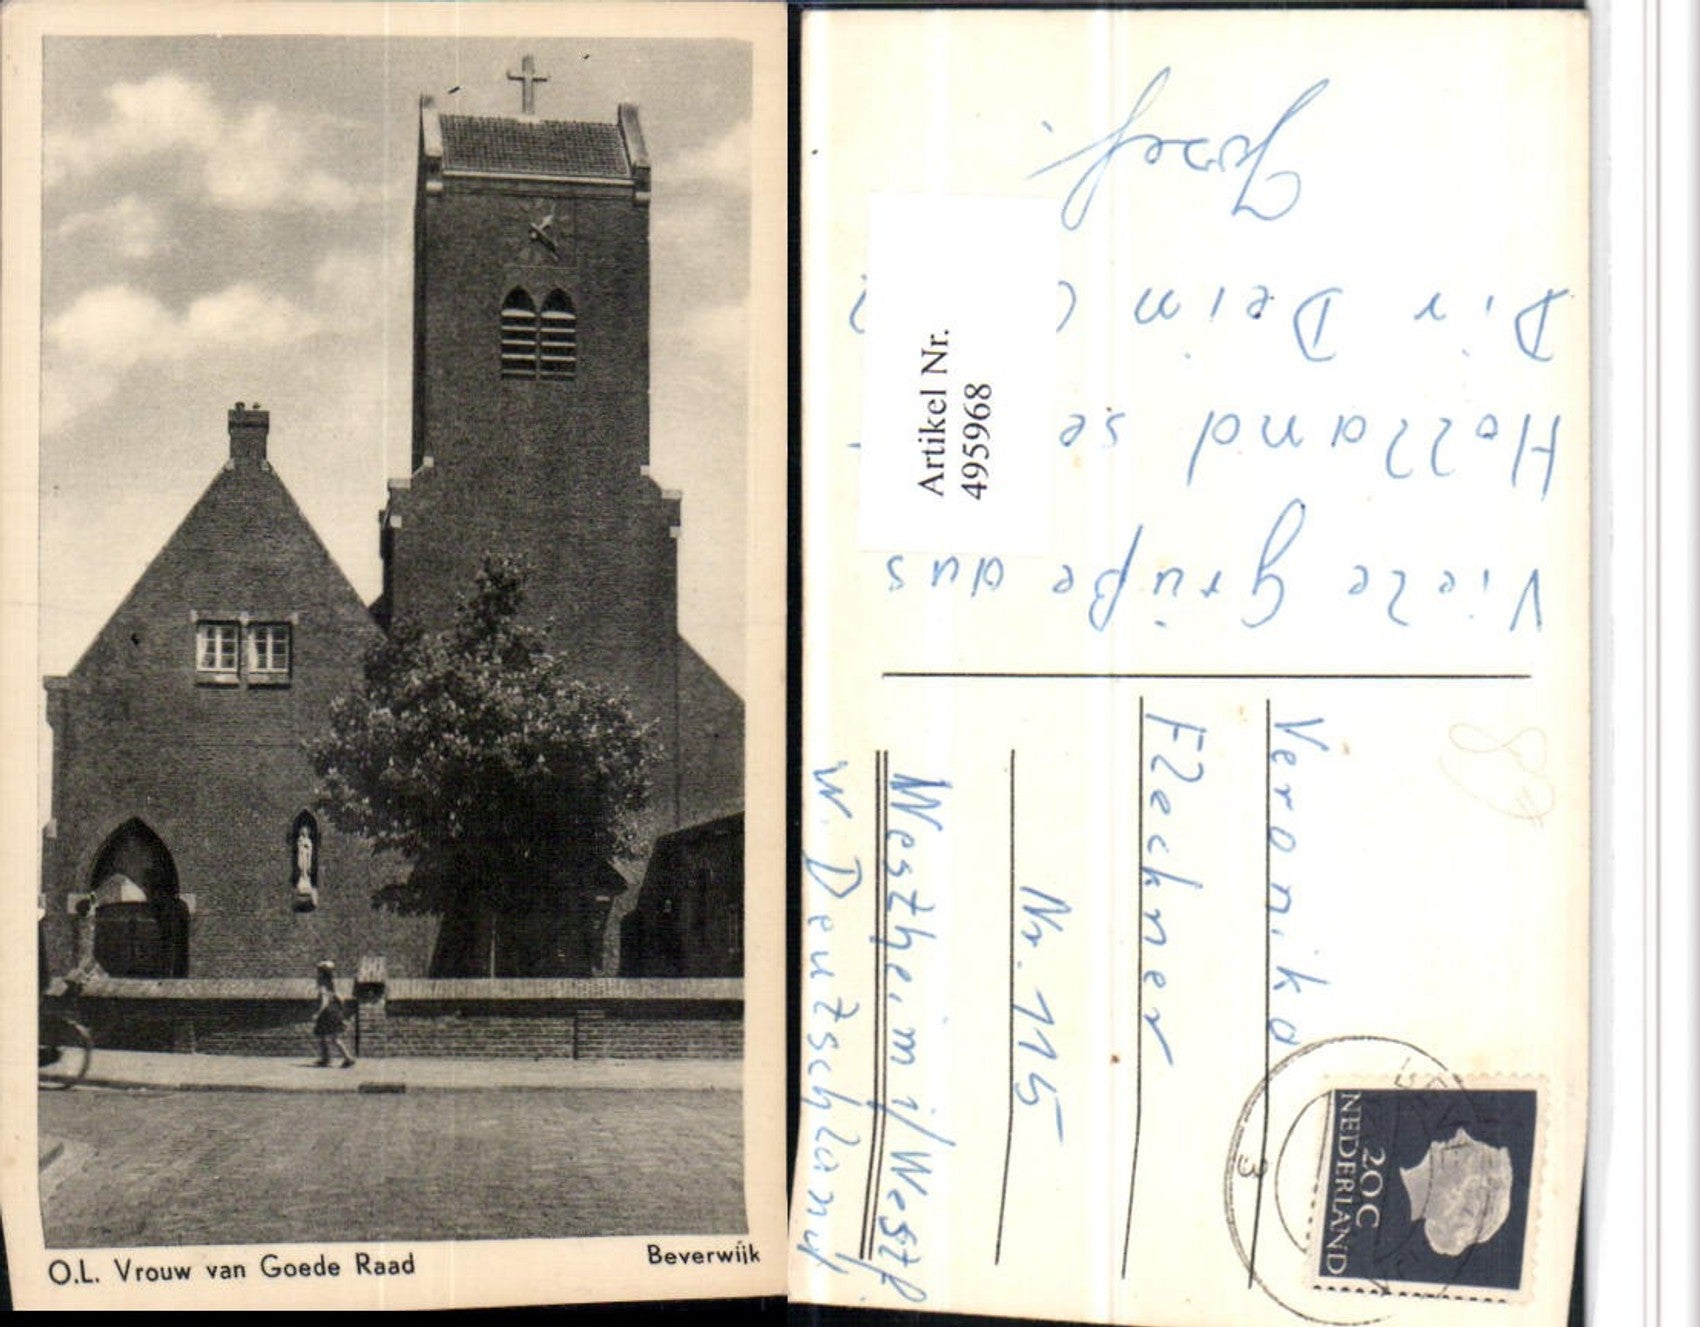 O.L. Vrouw van Goede Raad
Beverwijk
Viele Grüße aus
Holland se
Dir Dein
Josef.
Artikel Nr.
495968
Veronika
Flechner
Nr. 115
Westheim i/Westf
W. Deutschland
NEDERLAND
20C
3